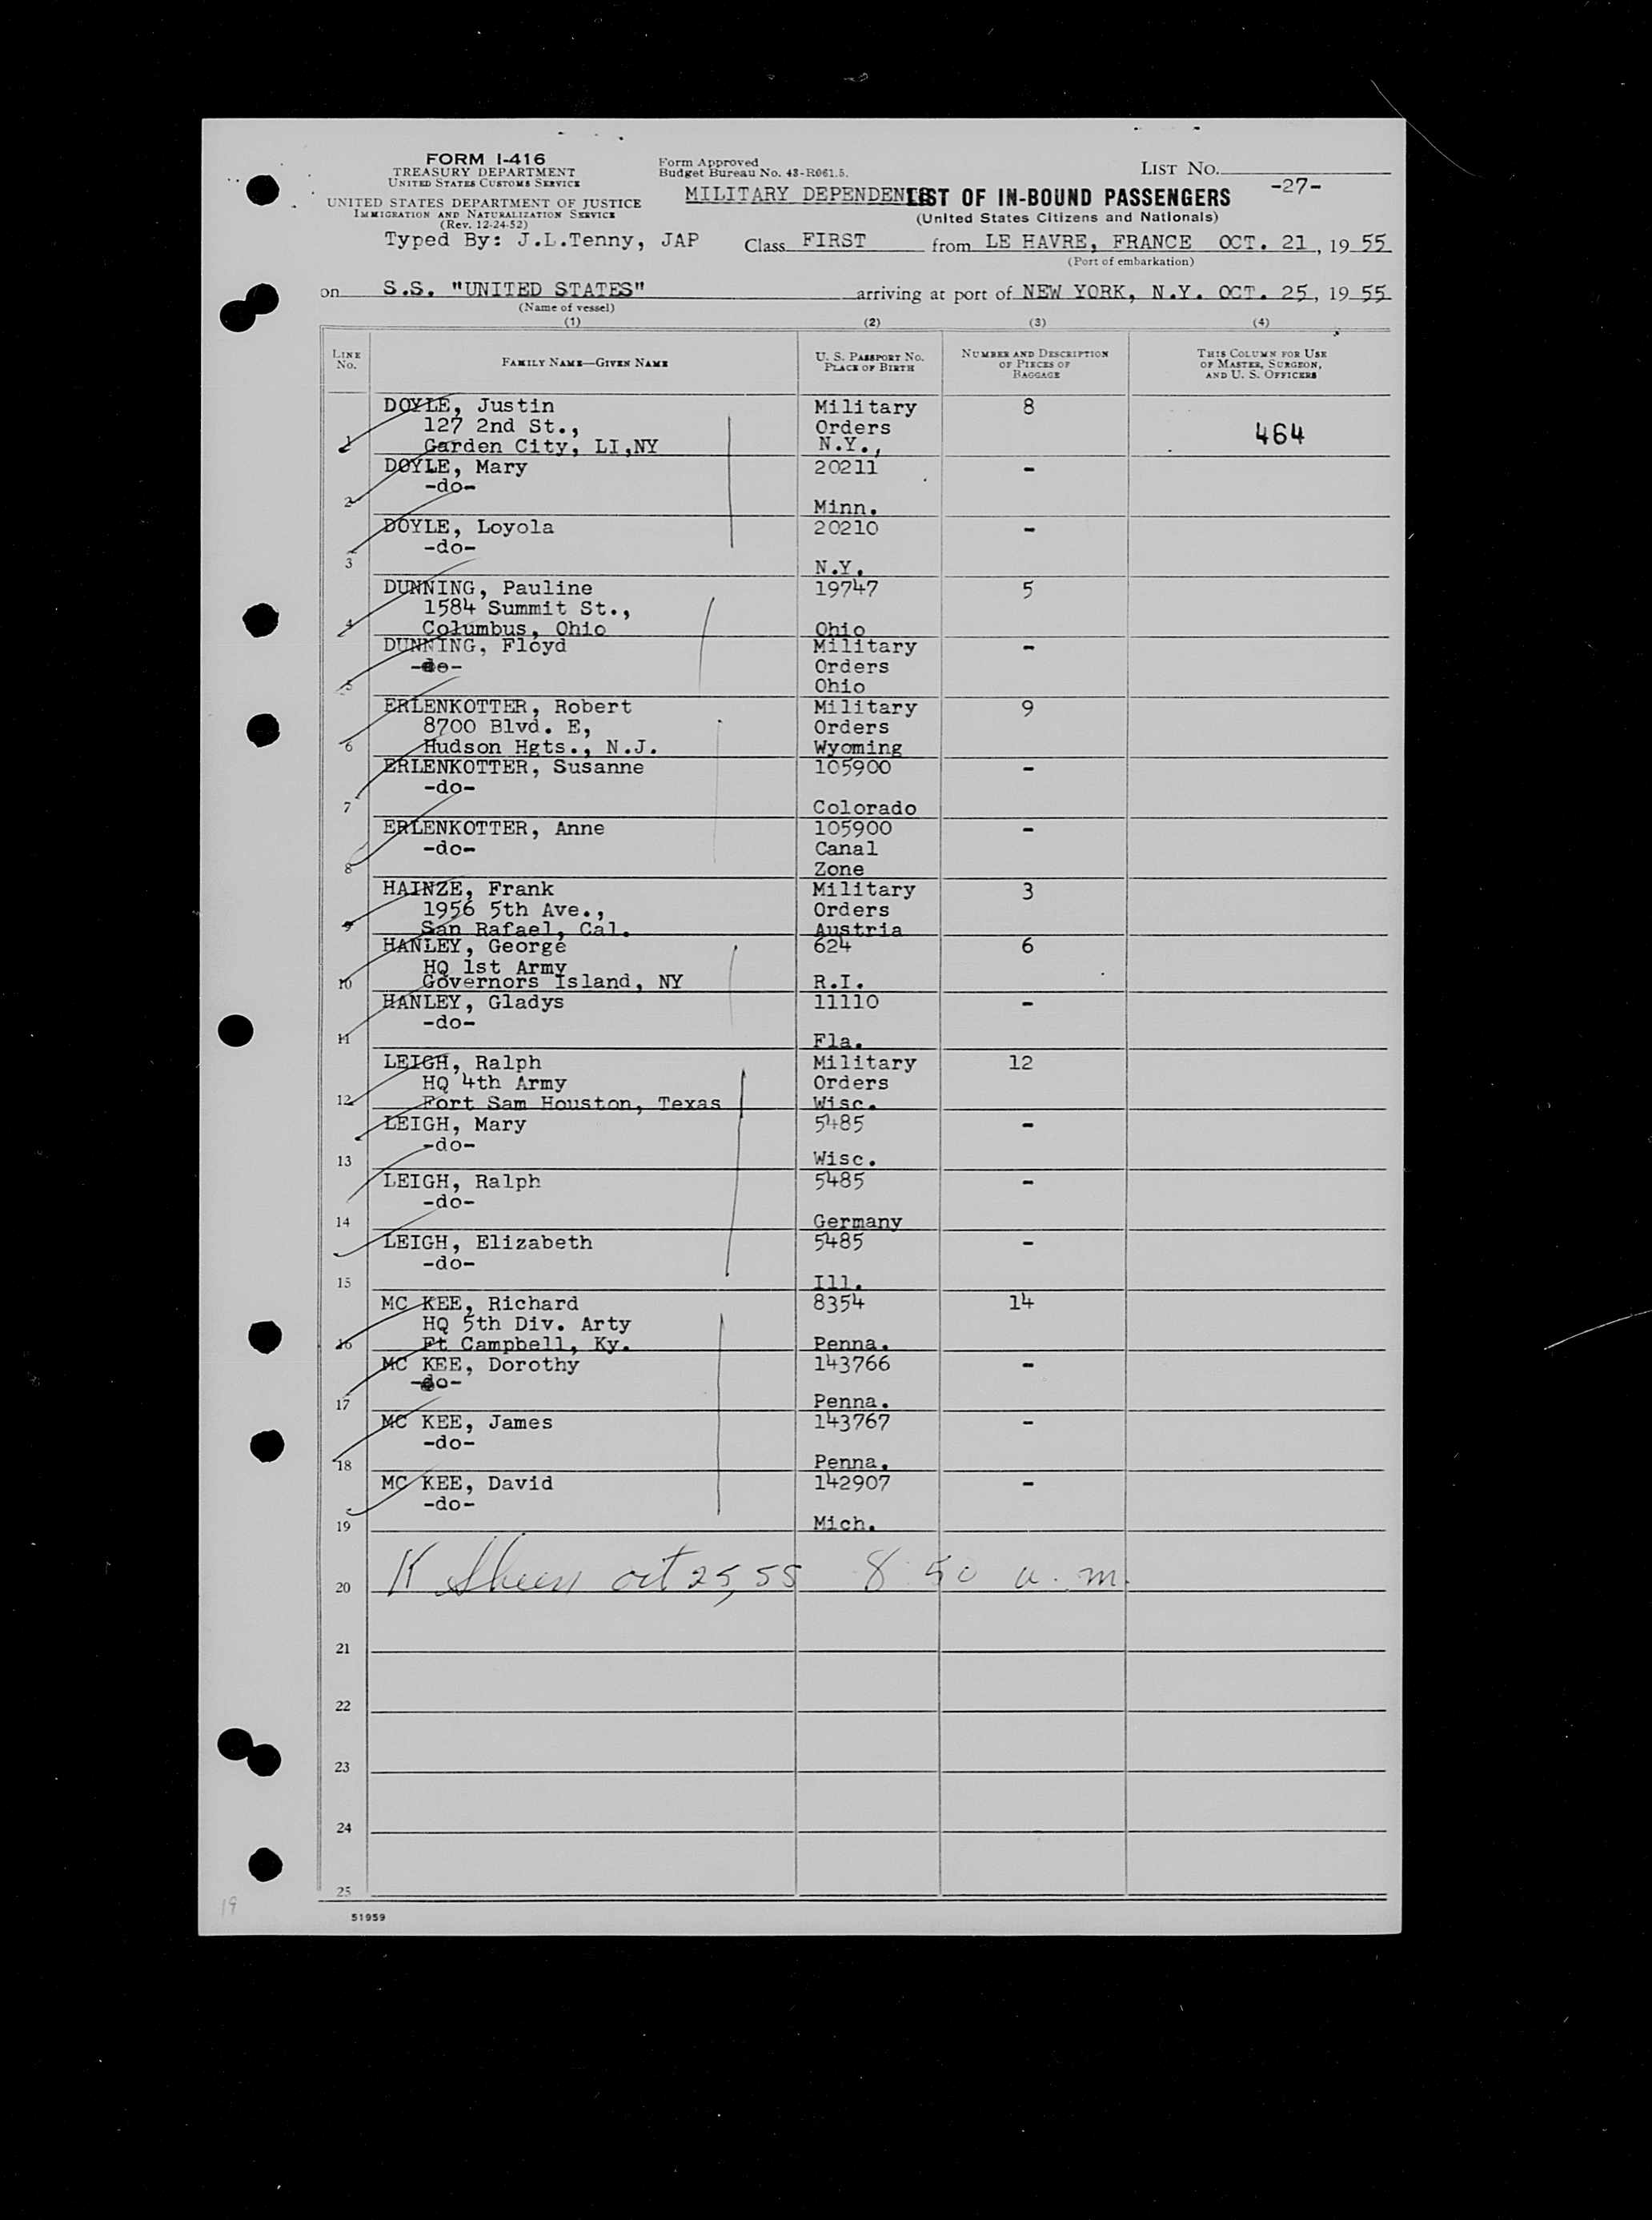 FORM I-416
TREASURY DEPARTMENT
UNITED STATES CUSTOMS SERVICE
UNITED STATES DEPARTMENT OF JUSTICE
IMMIGRATION AND NATURALIZATION SERVICE
(Rev. 12-24-52)
Typed By: J.L.Tenny, JAP
Form Approved
Budget Bureau No. 43-R061.5.
LIST NO.
-27-
MILITARY DEPENDENTS LIST OF IN-BOUND PASSENGERS
(United States Citizens and Nationals)
Class FIRST from LE HAVRE, FRANCE OCT. 21, 19 55
(Port of embarkation)
on S.S. "UNITED STATES" arriving at port of NEW YORK, N.Y. OCT. 25, 19 55
(Name of vessel)
(1) (2) (3) (4)
LINE No. FAMILY NAME—GIVEN NAME U. S. PASSPORT NO. PLACE OF BIRTH NUMBER AND DESCRIPTION OF PIECES OF BAGGAGE THIS COLUMN FOR USE OF MASTER, SURGEON, AND U. S. OFFICERS
DOYLE, Justin Military 8
127 2nd St., Orders 464
1 Garden City, LI,NY N.Y.,
DOYLE, Mary 20211 -
-do-
2 Minn.
DOYLE, Loyola 20210 -
-do-
3 N.Y.
DUNNING, Pauline 19747 5
1584 Summit St.,
4 Columbus, Ohio Ohio
DUNNING, Floyd Military -
-do- Orders
5 Ohio
ERLENKOTTER, Robert Military 9
8700 Blvd. E, Orders
6 Hudson Hgts., N.J. Wyoming
ERLENKOTTER, Susanne 105900 -
-do-
7 Colorado
ERLENKOTTER, Anne 105900 -
-do- Canal
8 Zone
HAINZE, Frank Military 3
1956 5th Ave., Orders
9 San Rafael, Cal. Austria
HANLEY, George 624 6
HQ 1st Army
10 Governors Island, NY R.I.
HANLEY, Gladys 11110 -
-do-
11 Fla.
LEIGH, Ralph Military 12
HQ 4th Army Orders
12 Fort Sam Houston, Texas Wisc.
LEIGH, Mary 5485 -
-do-
13 Wisc.
LEIGH, Ralph 5485 -
-do-
14 Germany
LEIGH, Elizabeth 5485 -
-do-
15 Ill.
MC KEE, Richard 8354 14
HQ 5th Div. Arty
16 Ft Campbell, Ky. Penna.
MC KEE, Dorothy 143766 -
-do-
17 Penna.
MC KEE, James 143767 -
-do-
18 Penna.
MC KEE, David 142907 -
-do-
19 Mich.
20 K oct 25, 55 8 50 a.m.
21
22
23
24
25
19
51959